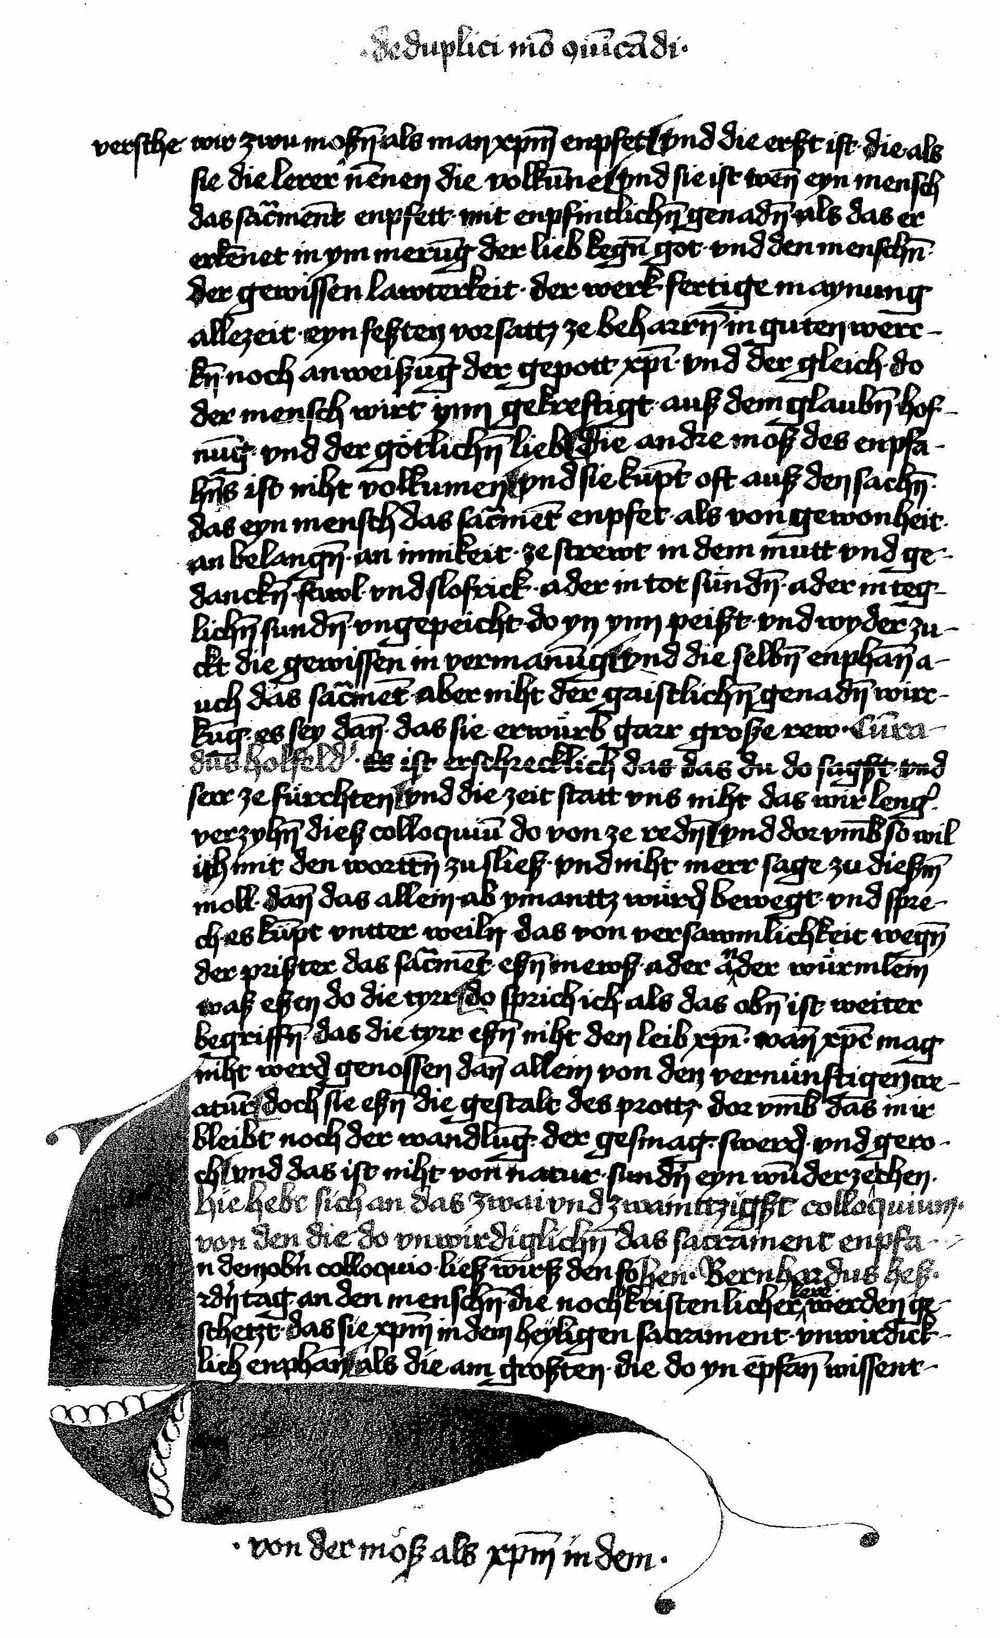 ·de duplici mō ꝯiūicādi·
versthe wir zwu moßn̄ als man xpm̄ enpfett vnd die erst ist· die als
sie die lerer nēnen die volkūne vnd sie ist wen̄ eyn mensch
das sac̄ment enpfett· mit enpfintlichn̄ genadn̄ als das er
erkēnet in ym merūg der lieb kegn̄ got· vnd den menschn̄·
der gewissen lawterkeit· der werk fertige maynung
allezeit· eyn festen vorsattz ze beharrn̄ in guten werc-
kn̄ noch anweißūg der gepott xpī· vnd der gleich do
der mensch wirt ynn gekreftigt auß dem glaubn̄ hof-
nūg· vnd der götlichn̄ lieb die andre moß des enpfa-
hn̄s ist niht volkumen vnd sie kūpt oft auß den sachn̄·
das eyn mensch das sac̄mēt enpfet· als von gewonheit·
an belangn̄· an innikeit· ze strewt in dem mutt vnd ge-
danckn̄· fawl· vnd slofrick· ader in tot sündn̄· ader in teg-
lichn̄ sundn̄· vngepeicht· do yn ynn peißt· vnd wyder zu-
ckt die gewissen in vermanūg vnd die selbn̄ enphan̄ a-
uch das sac̄mēt· aber niht der gaistlichn̄ genadn̄ wirc-
kūg· es sey dan̄· das sie erwürb garr große rew· Cūra-
dus holfeld'· es ist erschrecklich das das du do sagst· vnd
serr ze fürchten vnd die zeit statt vns niht das wir leng'
verzyhn̄ dieß colloquiū do von ze redn̄ vnd dor vmb so wil
ich mit den wortn̄ zu sließ· vnd niht merr sage zu dießm̄
moll· dan̄ das allein· ab ymanttz würd bewegt· vnd spre-
ch es kūpt vntter weiln das von versawmlichkeit wegn̄
der prister das sac̄mēt· eßn̄ mewß· ader ander würmlein
waß eßen do die tyrr do sprich ich· als das obn̄ ist weiter
begriffn̄· das die tyrr eßn̄ niht den leib xpī· wan̄ xpc̄ mag
niht werd genossen dan̄ allein von den vernünftigen cre-
atūr doch sie eßn̄ die gestalt des prottz· dor vmb das in ir
bleibt noch der wandlūg· der gesmag· swerd· vnd gero-
ch vnd das ist niht von natur· sundn̄ eyn wūderzechen·
hie hebt sich an das zwai vnd zwainttzigst colloquium·
von den die do vnwirdiglichn̄ das sacrament enpfa-
n dem obn̄ colloquio· ließ wirß den sohen· Bernhardus heß·
rdn̄ tag· an den menschn̄ die noch kristenlicher lere werden ge-
schetzt· das sie xpm̄ in dem heyligen sacrament· vnwirdick-
lich enphan̄ als die am grosten· die do yn epfan̄ wissent-
·von der moß als xpm̄ in dem·